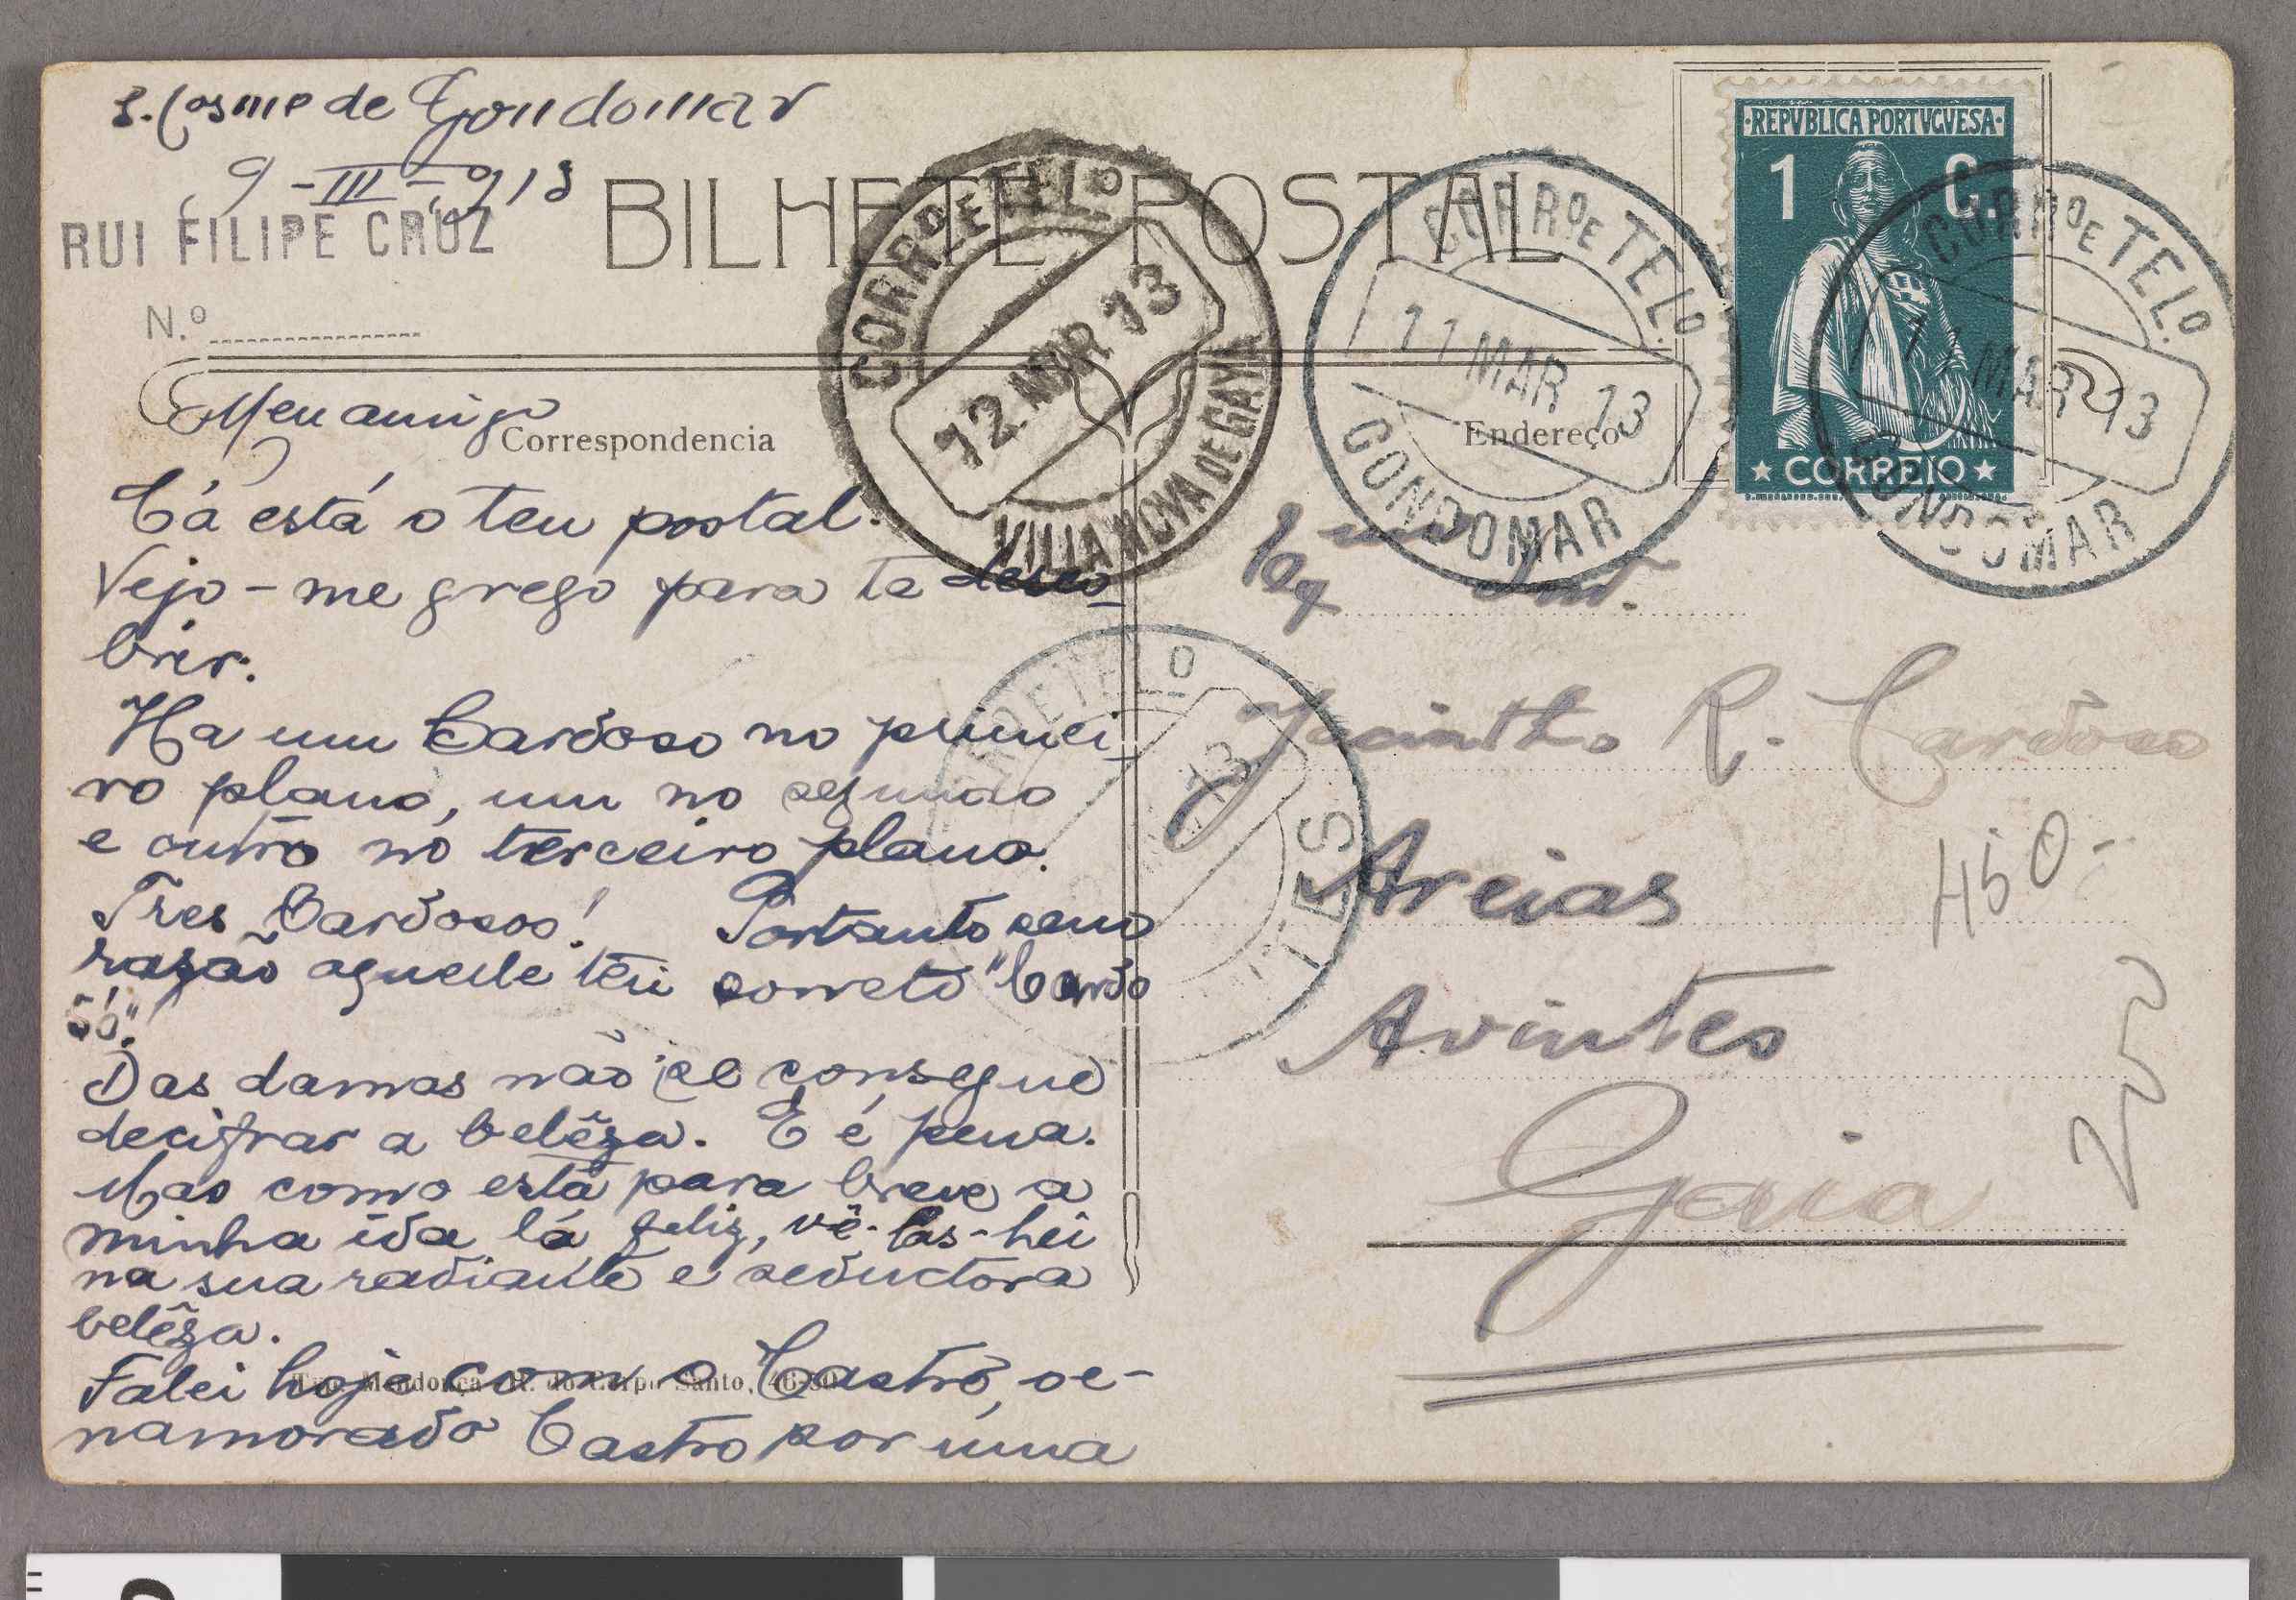 S. Cosme de Gondomar
9-III-913
RUI FILIPE CRUZ
BILHETE POSTAL
N.º
Correspondencia
Endereço
REPVBLICA PORTVGVESA
1 C.
CORREIO
CORRº E TELº
12 MAR 13
VILLA NOVA DE GAYA
CORRº E TELº
11 MAR 13
GONDOMAR
CORRº E TELº
11 MAR 13
GONDOMAR
Meu amigo
Cá está o teu postal.
Vejo-me grego para te desco-
brir.
Ha um Cardoso no primei-
ro plano, um no segundo
e outro no terceiro plano.
Tres Cardosos! Portanto
razão aquele teu "Cardo
só"!
Das damas não se consegue
decifrar a belêza. E é pena.
Mas como está para breve a
minha ida lá feliz, vê-las-hei
na sua radiante e seductora
belêza.
Falei hoje com o Castro, oe-
namorado Castro por uma
Typ. Mendonça - R. do Corpo Santo, 46-50
Exmo Snr.
Jacintho R. Cardoso
Areias
Avintes
Gaia
450-